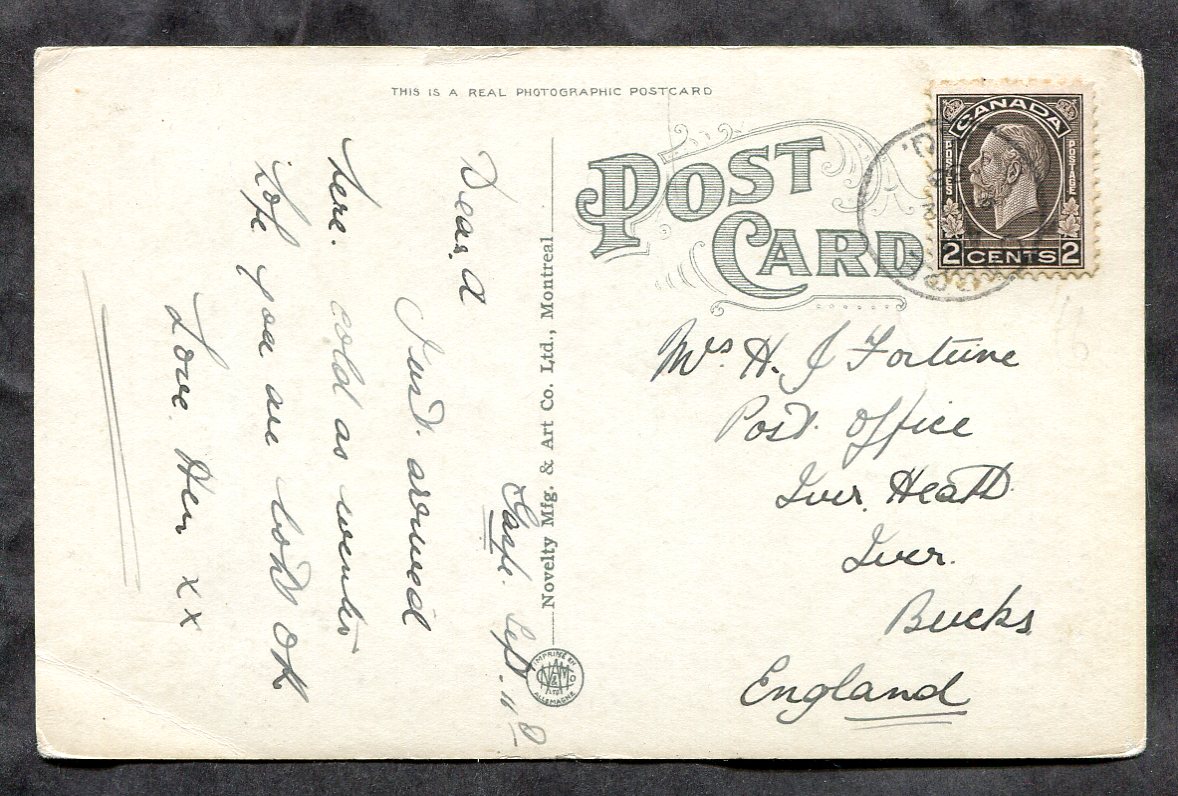 THIS IS A REAL PHOTOGRAPHIC POSTCARD
POST
CARD
CANADA
POSTES
POSTAGE
2 CENTS 2
Novelty Mfg. & Art Co. Ltd., Montreal
IMPRIMÉ EN
ALLEMAGNE
Sept. 11th
Dear A
Just arrived
here. cold as winter
Hope you are both OK
Love. Hen x x
Mrs H. J Fortune
Post. Office
Iver. Heath
Iver.
Bucks
England